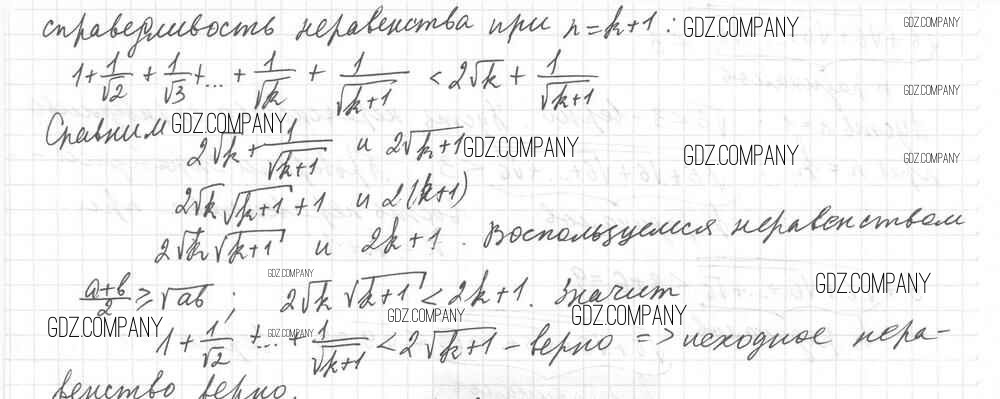 справедливость неравенства при n=k+1: GDZ.COMPANY GDZ.COMPANY
1+1/√2 + 1/√3 +... + 1/√k + 1/√(k+1) < 2√k + 1/√(k+1) GDZ.COMPANY
Сравним GDZ.COMPANY
2√k + 1/√(k+1) и 2√(k+1) GDZ.COMPANY GDZ.COMPANY GDZ.COMPANY
2√k √(k+1) + 1 и 2(k+1)
2√k √(k+1) и 2k+1. Воспользуемся неравенством
GDZ.COMPANY
(a+b)/2 ≥ √ab ; 2√k √(k+1) < 2k+1. Значит GDZ.COMPANY
GDZ.COMPANY GDZ.COMPANY GDZ.COMPANY GDZ.COMPANY
1+1/√2 +...+ 1/√(k+1) < 2√(k+1) – верно => исходное нера-
венство верно.